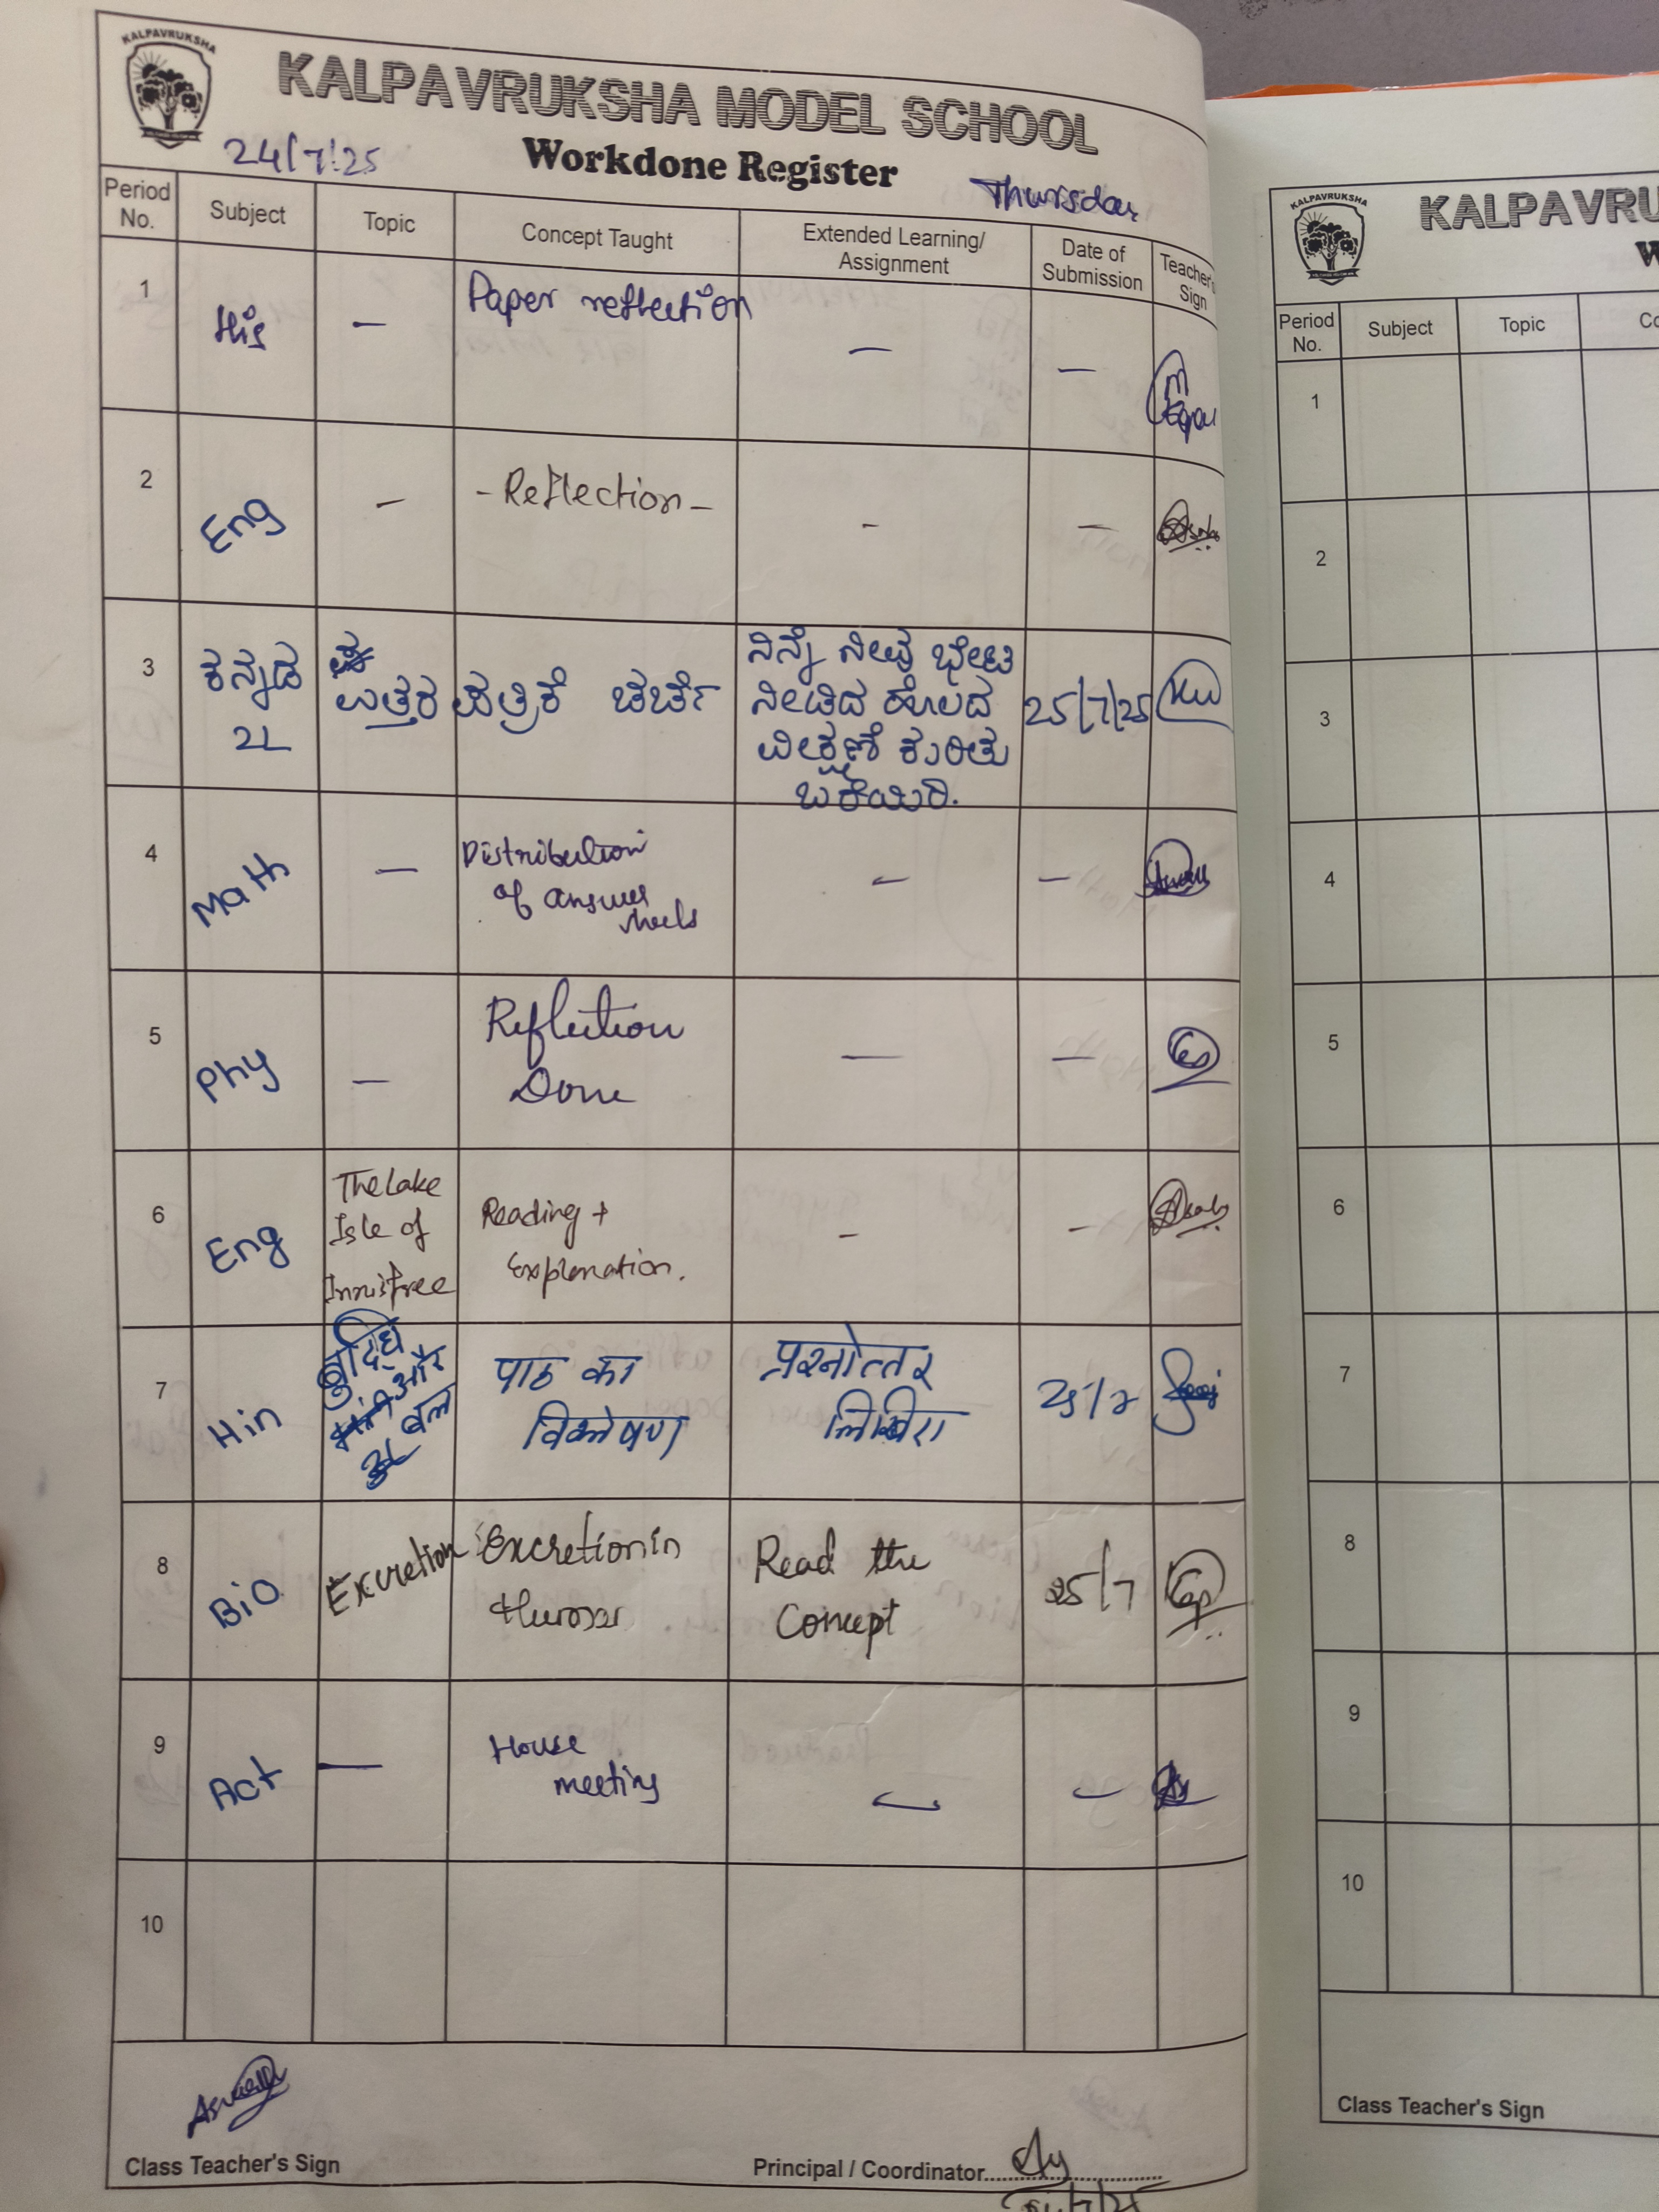 KALPAVRUKSHA
KALPAVRUKSHA MODEL SCHOOL
24/7/25 Workdone Register Thursday
Period No. Subject Topic Concept Taught Extended Learning/ Assignment Date of Submission Teacher's Sign
1 His — Paper reflection — —
2 Eng — - Reflection - - —
3 ಕನ್ನಡ 2L ಉತ್ತರ ಪತ್ರಿಕೆ ಚರ್ಚೆ ನಿನ್ನೆ ನೀವು ಭೇಟಿ 25/7/25
ನೀಡಿದ ಹೊಲದ
ವೀಕ್ಷಣೆ ಕುರಿತು
ಬರೆಯಿರಿ.
4 Math — Distribution — —
of answer
sheets
5 Phy — Reflection — —
Done
6 Eng The Lake Reading + - —
Isle of Explanation.
Innisfree
7 Hin बुद्धि और बल पाठ का प्रश्नोत्तर 25/7
विश्लेषण लिखिए।
8 Bio Excretion Excretion in Read the 25/7
Human Concept
9 Act — House — —
meeting
10
Class Teacher's Sign Principal / Coordinator
KALPAVRUKSHA
KALPAVRU
W
Period No. Subject Topic Co
1
2
3
4
5
6
7
8
9
10
Class Teacher's Sign